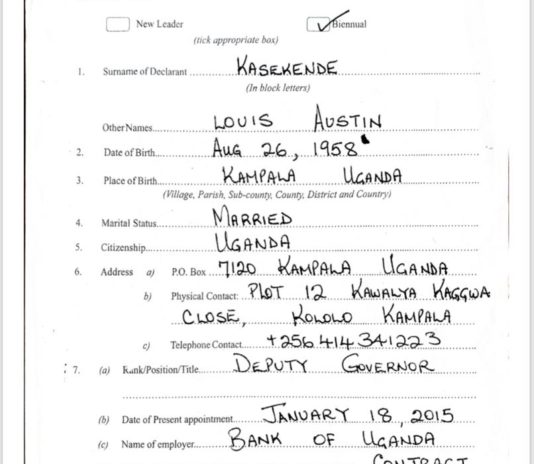 New Leader Biennual
(tick appropriate box)
1. Surname of Declarant KASEKENDE
(In block letters)
Other Names LOUIS AUSTIN
2. Date of Birth AUG 26, 1958
3. Place of Birth KAMPALA UGANDA
(Village, Parish, Sub-county, County, District and Country)
4. Marital Status MARRIED
5. Citizenship UGANDA
6. Address a) P.O. Box 7120 KAMPALA UGANDA
b) Physical Contact: PLOT 12 KAWALYA KAGGWA
CLOSE, KOLOLO KAMPALA
c) Telephone Contact +256 414 341223
7. (a) Rank/Position/Title DEPUTY GOVERNOR
(b) Date of Present appointment JANUARY 18, 2015
(c) Name of employer BANK OF UGANDA
CONTRACT